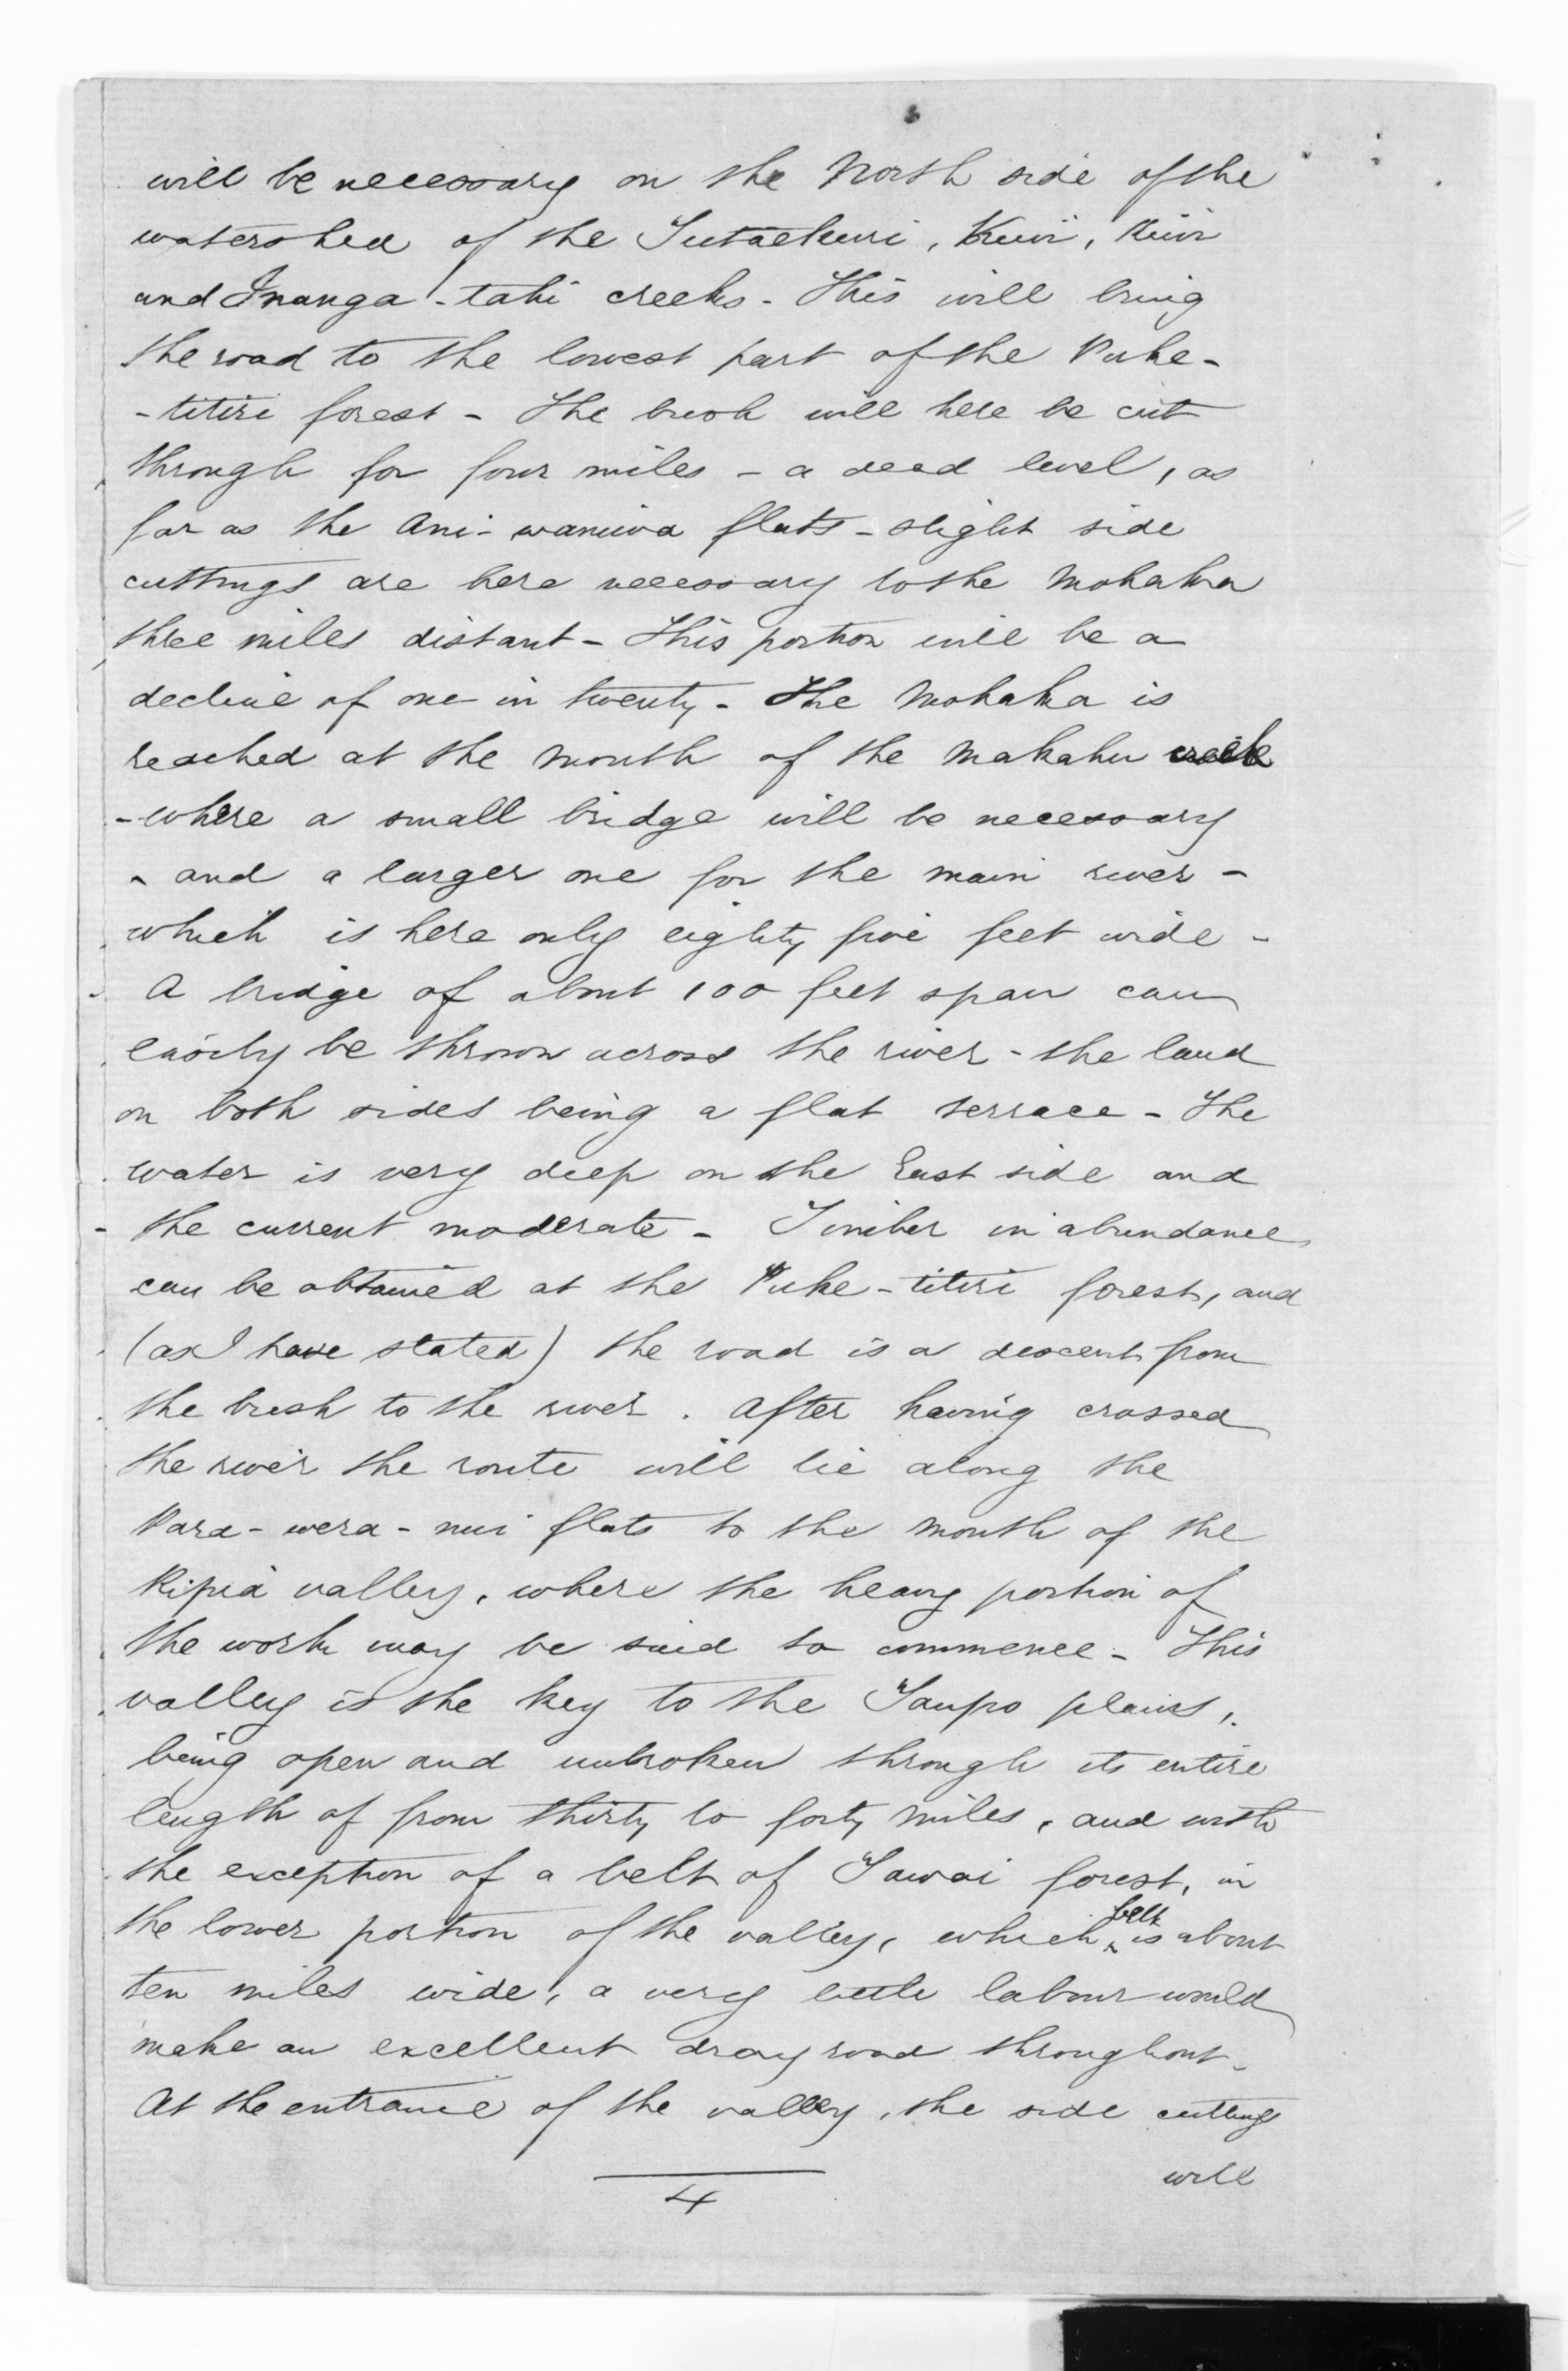 will be necessary on the North side of the
watershed of the Tutaekuri, Kiwi,
and Inanga-tahi creeks - This will bring
the road to the lowest part of the Puke-
-titiri forest - The bush will here be cut
through for four miles - a dead level, as
far as the Ani-waniwa flats - slight side
cuttings are here necessary to the Mohaka
three miles distant - This portion will be a
decline of one in twenty - The Mohaka is
reached at the mouth of the Makahu creek
- where a small bridge will be necessary
- and a larger one for the main river -
which is here only eighty five feet wide -
A bridge of about 100 feet span can
easily be thrown across the river - the land
on both sides being a flat terrace - The
water is very deep on the East side and
- the current moderate - Timber in abundance
can be obtained at the Puke-titiri forest, and
(as I have stated) the road is a descent from
the bush to the river. After having crossed
the river the route will lie along the
Para-wera-nui flats to the mouth of the
Ripia valley, where the heavy portion of
the work may be said to commence - This
valley is the key to the Taupo plains,
being open and unbroken through its entire
length of from thirty to forty miles, and with
the exception of a belt of Tawai forest, in
the lower portion of the valley, which belt is about
ten miles wide, a very little labour would
make an excellent dray road throughout -
At the entrance of the valley, the side cuttings
will
4